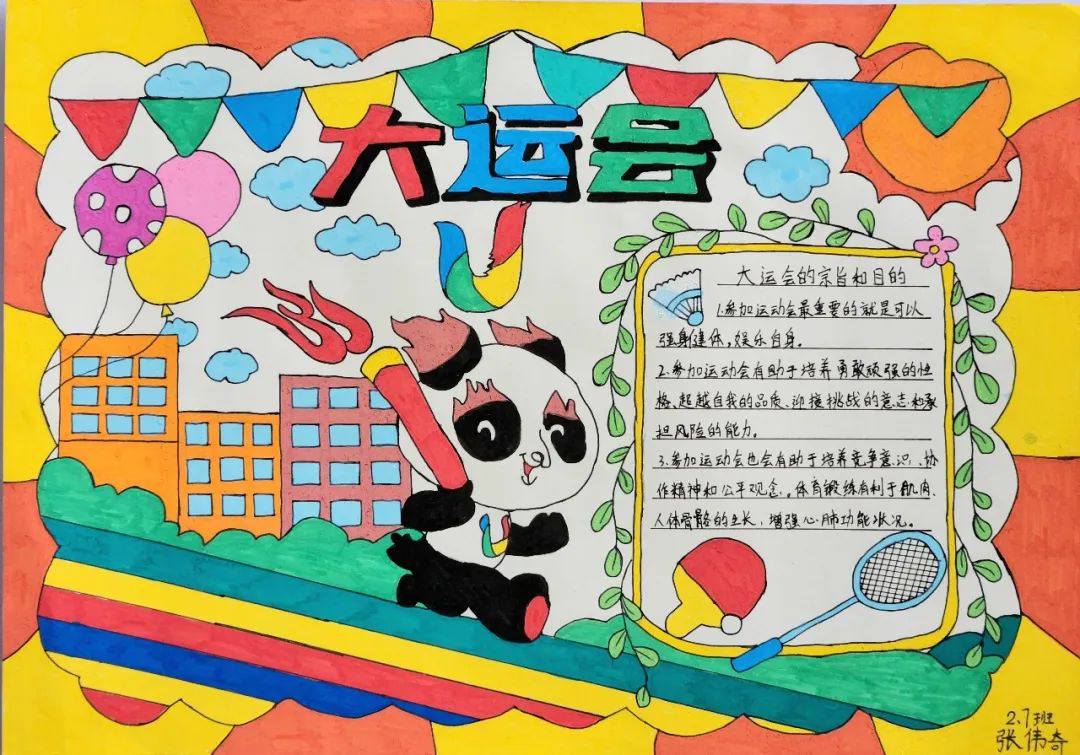 大运会
大运会的宗旨和目的
1.参加运动会最重要的就是可以
强身健体。娱乐自身。
2.参加运动会有助于培养勇敢顽强的性
格、超越自我的品质、迎接挑战的意志和承
担风险的能力。
3.参加运动会也会有助于培养竞争意识、协
作精神和公平观念。体育锻炼有利于肌肉、
人体骨骼的生长,增强心肺功能状况。
2.7班
张伟奇